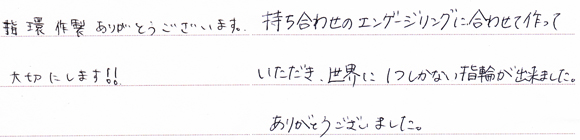 指環作製ありがとうございます。
大切にします!!
持ち合わせのエンゲージリングに合わせて作って
いただき、世界に1つしかない指輪が出来ました。
ありがとうございました。